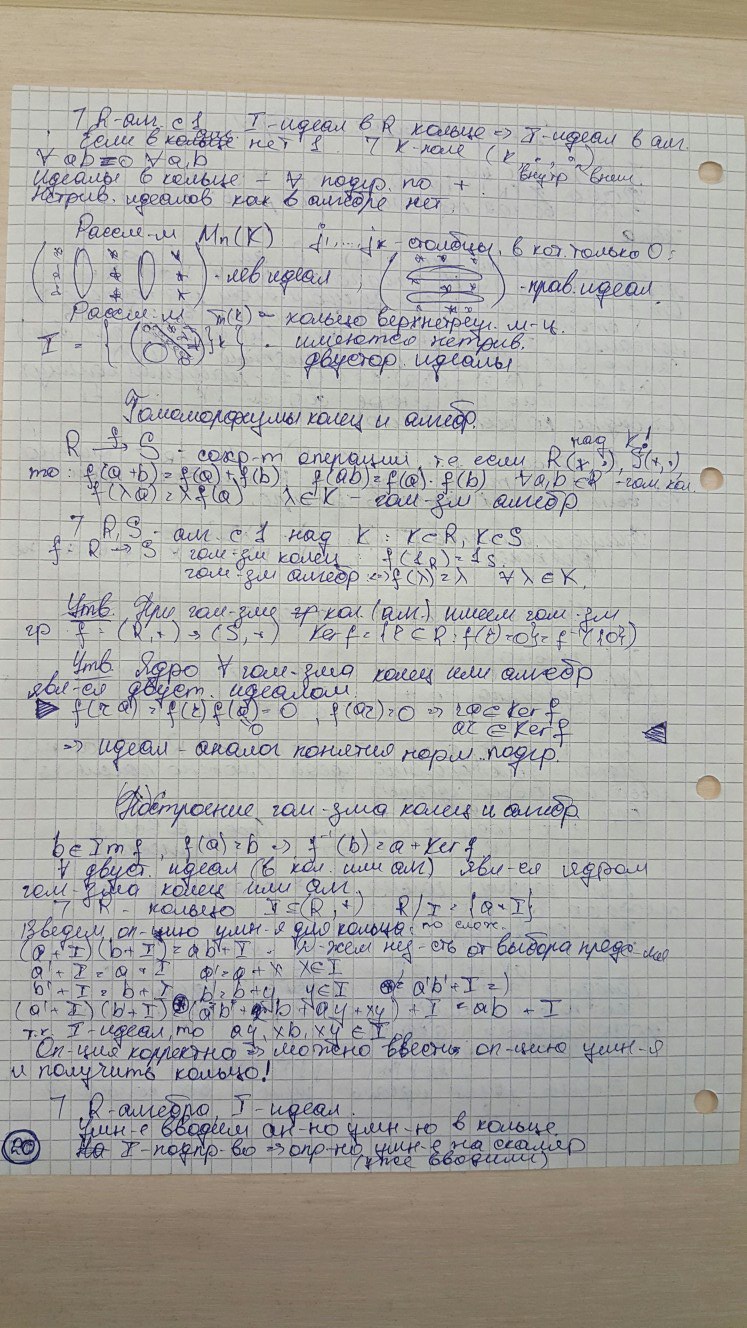 7 R-алг. с 1 I-идеал в R кольце => I-идеал в алг.
Если в кольце нет 1 7 K-поле (K, ·, ·)
∀ ab=0 ∀ a,b внутр внеш.
идеалы в кольце - ∀ подгр. по +
Нетрив. идеалов как в алгебре нет.
Рассм-м Mn(K) j1,...jk-столбцы, в кот. только 0:
- лев идеал, - прав. идеал
Рассм-м Tn(K) - кольцо верхнетреуг. м-ц.
I = { } имеются нетрив.
двустор. идеалы
Гомоморфизмы колец и алгебр.
над K!
R →f S - сохр-т операции, т.е. если R(+,·), S(+,·)
то: f(a+b)=f(a)+f(b) f(ab)=f(a)·f(b) ∀a,b∈R - гом. кол.
f(λa)=λf(a) λ∈K - гом-зм алгебр
7 R,S - алг. с 1 над K : K⊂R, K⊂S
f: R→S - гом-зм колец : f(1R)=1S
гом-зм алгебр <=> f(λ)=λ ∀λ∈K.
Утв. При гом-зме кол. (алг.) имеем гом-зм
гр. f: (R,+)→(S,+) Kerf={r∈R: f(r)=0}=f⁻¹({0})
Утв. Ядро ∀ гом-зма колец или алгебр
явл-ся двуст. идеалом.
▶ f(ra)=f(r)f(a)=0, f(ar)=0 => ra∈Kerf
=0 ar∈Kerf ◀
=> идеал - аналог понятия норм. подгр.
Построение гом-зма колец и алгебр.
b∈Imf, f(a)=b => f⁻¹(b)=a+Kerf
∀ двуст. идеал (в кол. или алг) явл-ся ядром
гом-зма колец или алг.
7 R - кольцо I⊂(R,+) R/I={a+I}
Введем оп-цию умн-я для кольца: по слож.
(a+I)(b+I)=ab+I. нез-сть от выбора предс-ля
a'+I=a+I a'=a+x x∈I
b'+I=b+I b'=b+y y∈I = a'b'+I =)
(a'+I)(b'+I) (ab+xb+ay+xy)+I=ab+I
т.к. I-идеал, то ay, xb, xy∈I
Оп-ция корректна => можно ввести оп-цию умн-я
и получить кольцо!
7 R-алгебра, I-идеал.
Умн-е вводим ан-но умн-ю в кольце
I-подпр-во => опр-но умн-е на скаляр
(уже вводили)
20